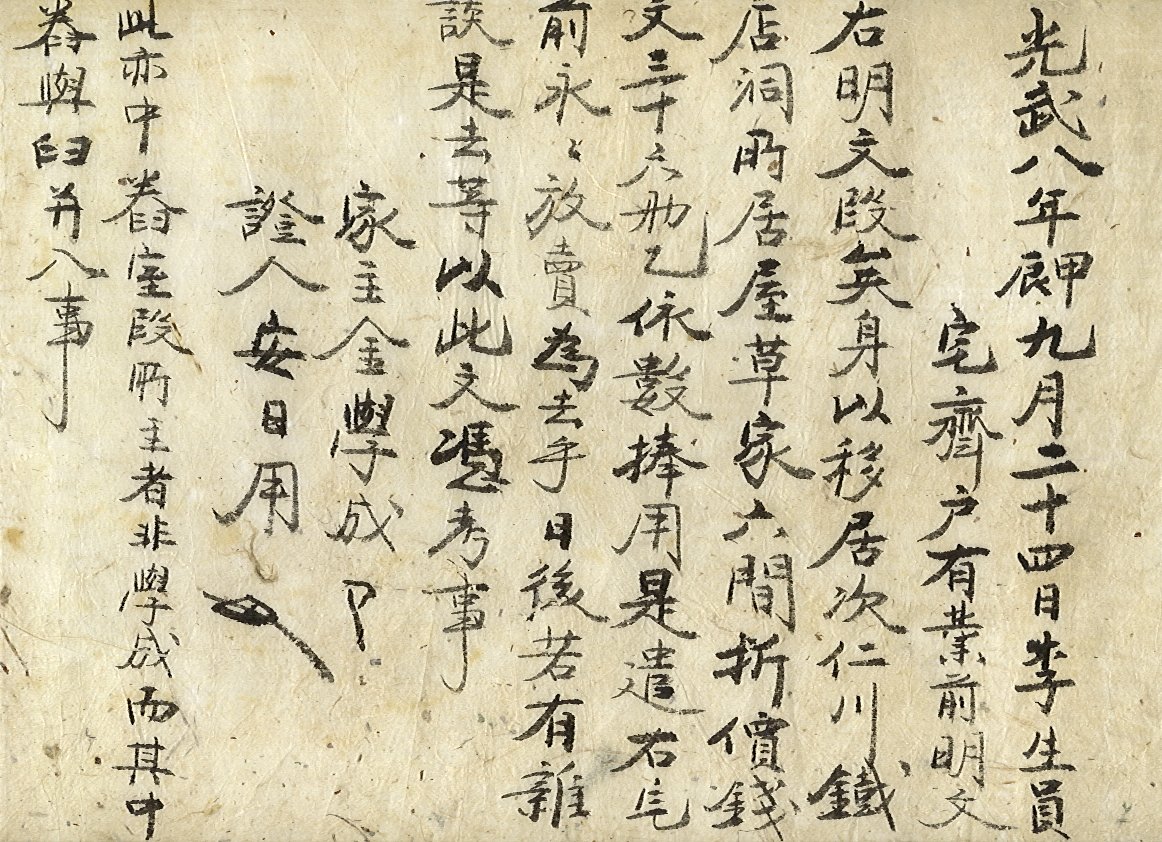 光武八年甲辰九月二十四日李生員
宅齊戶有業前明文
右明文段矣身以移居次仁川鐵
店洞所居屋草家六間折價錢
文三十六兩乙依數捧用是遣右宅
前永〻放賣爲去乎日後若有雜
談是去等以此文憑考事
家主金學成
證人安日用
此亦中舂室段所主者非學成而其中
舂與臼幷入事